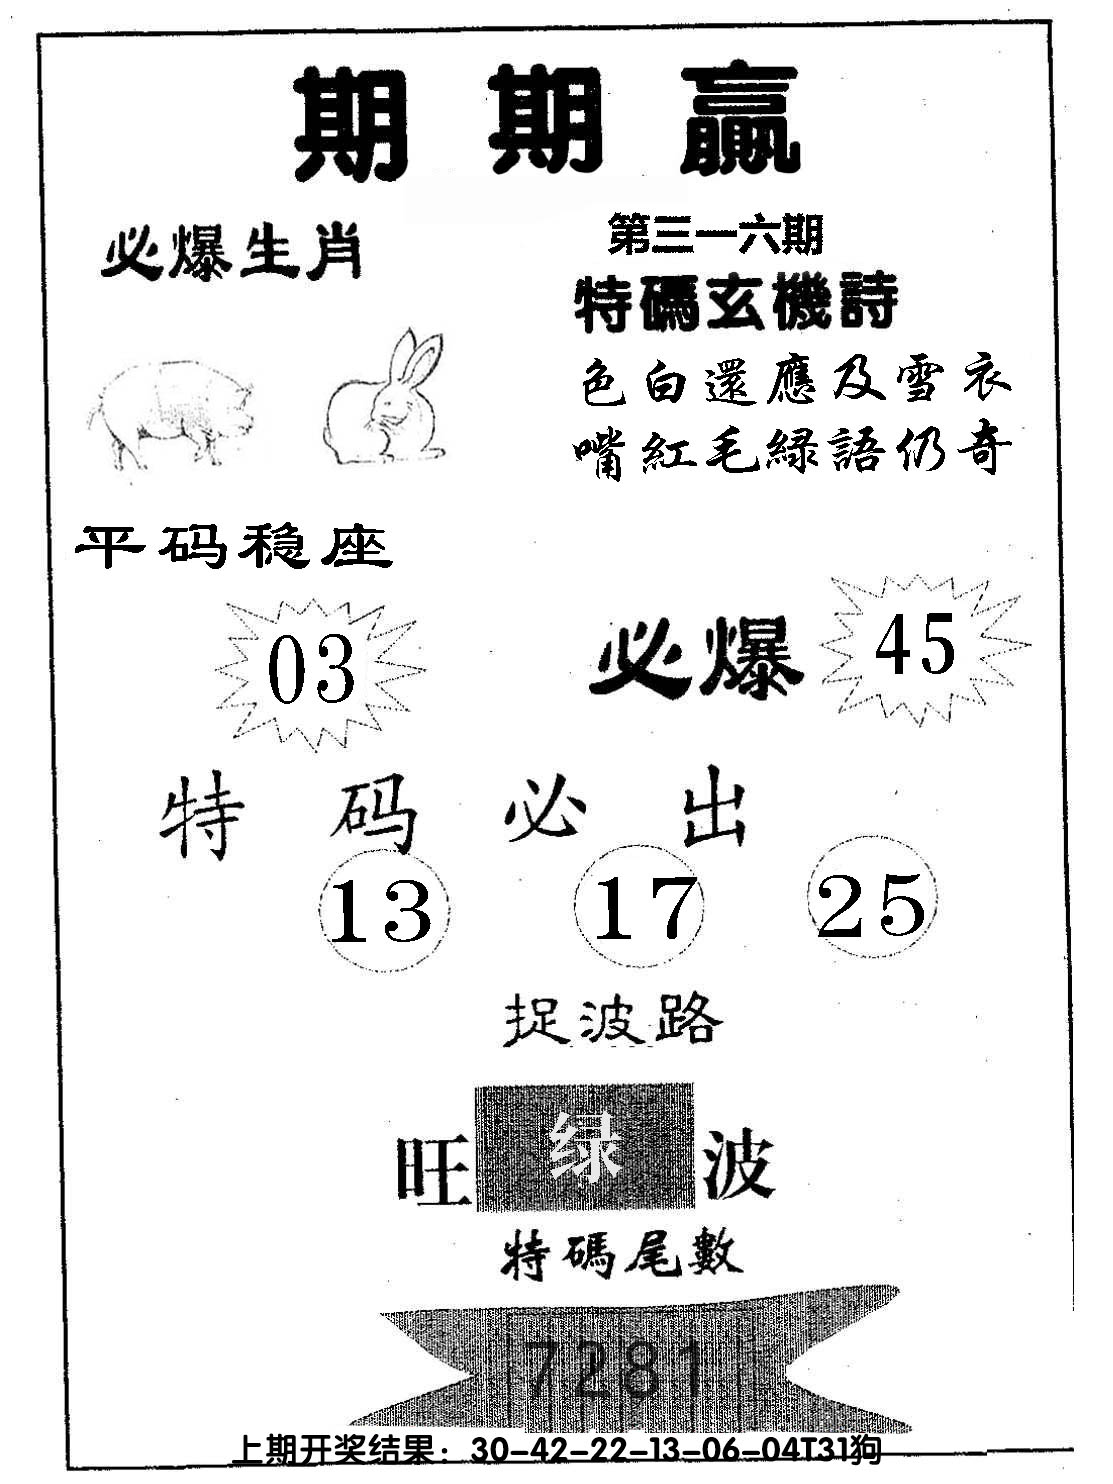 期期贏
必爆生肖
第三一六期
特碼玄機詩
色白還應及雪衣
嘴紅毛綠語仍奇
平码稳座
03
必爆
45
特码必出
13 17 25
捉波路
旺绿波
特碼尾數
7281
上期开奖结果：30-42-22-13-06-04T31狗